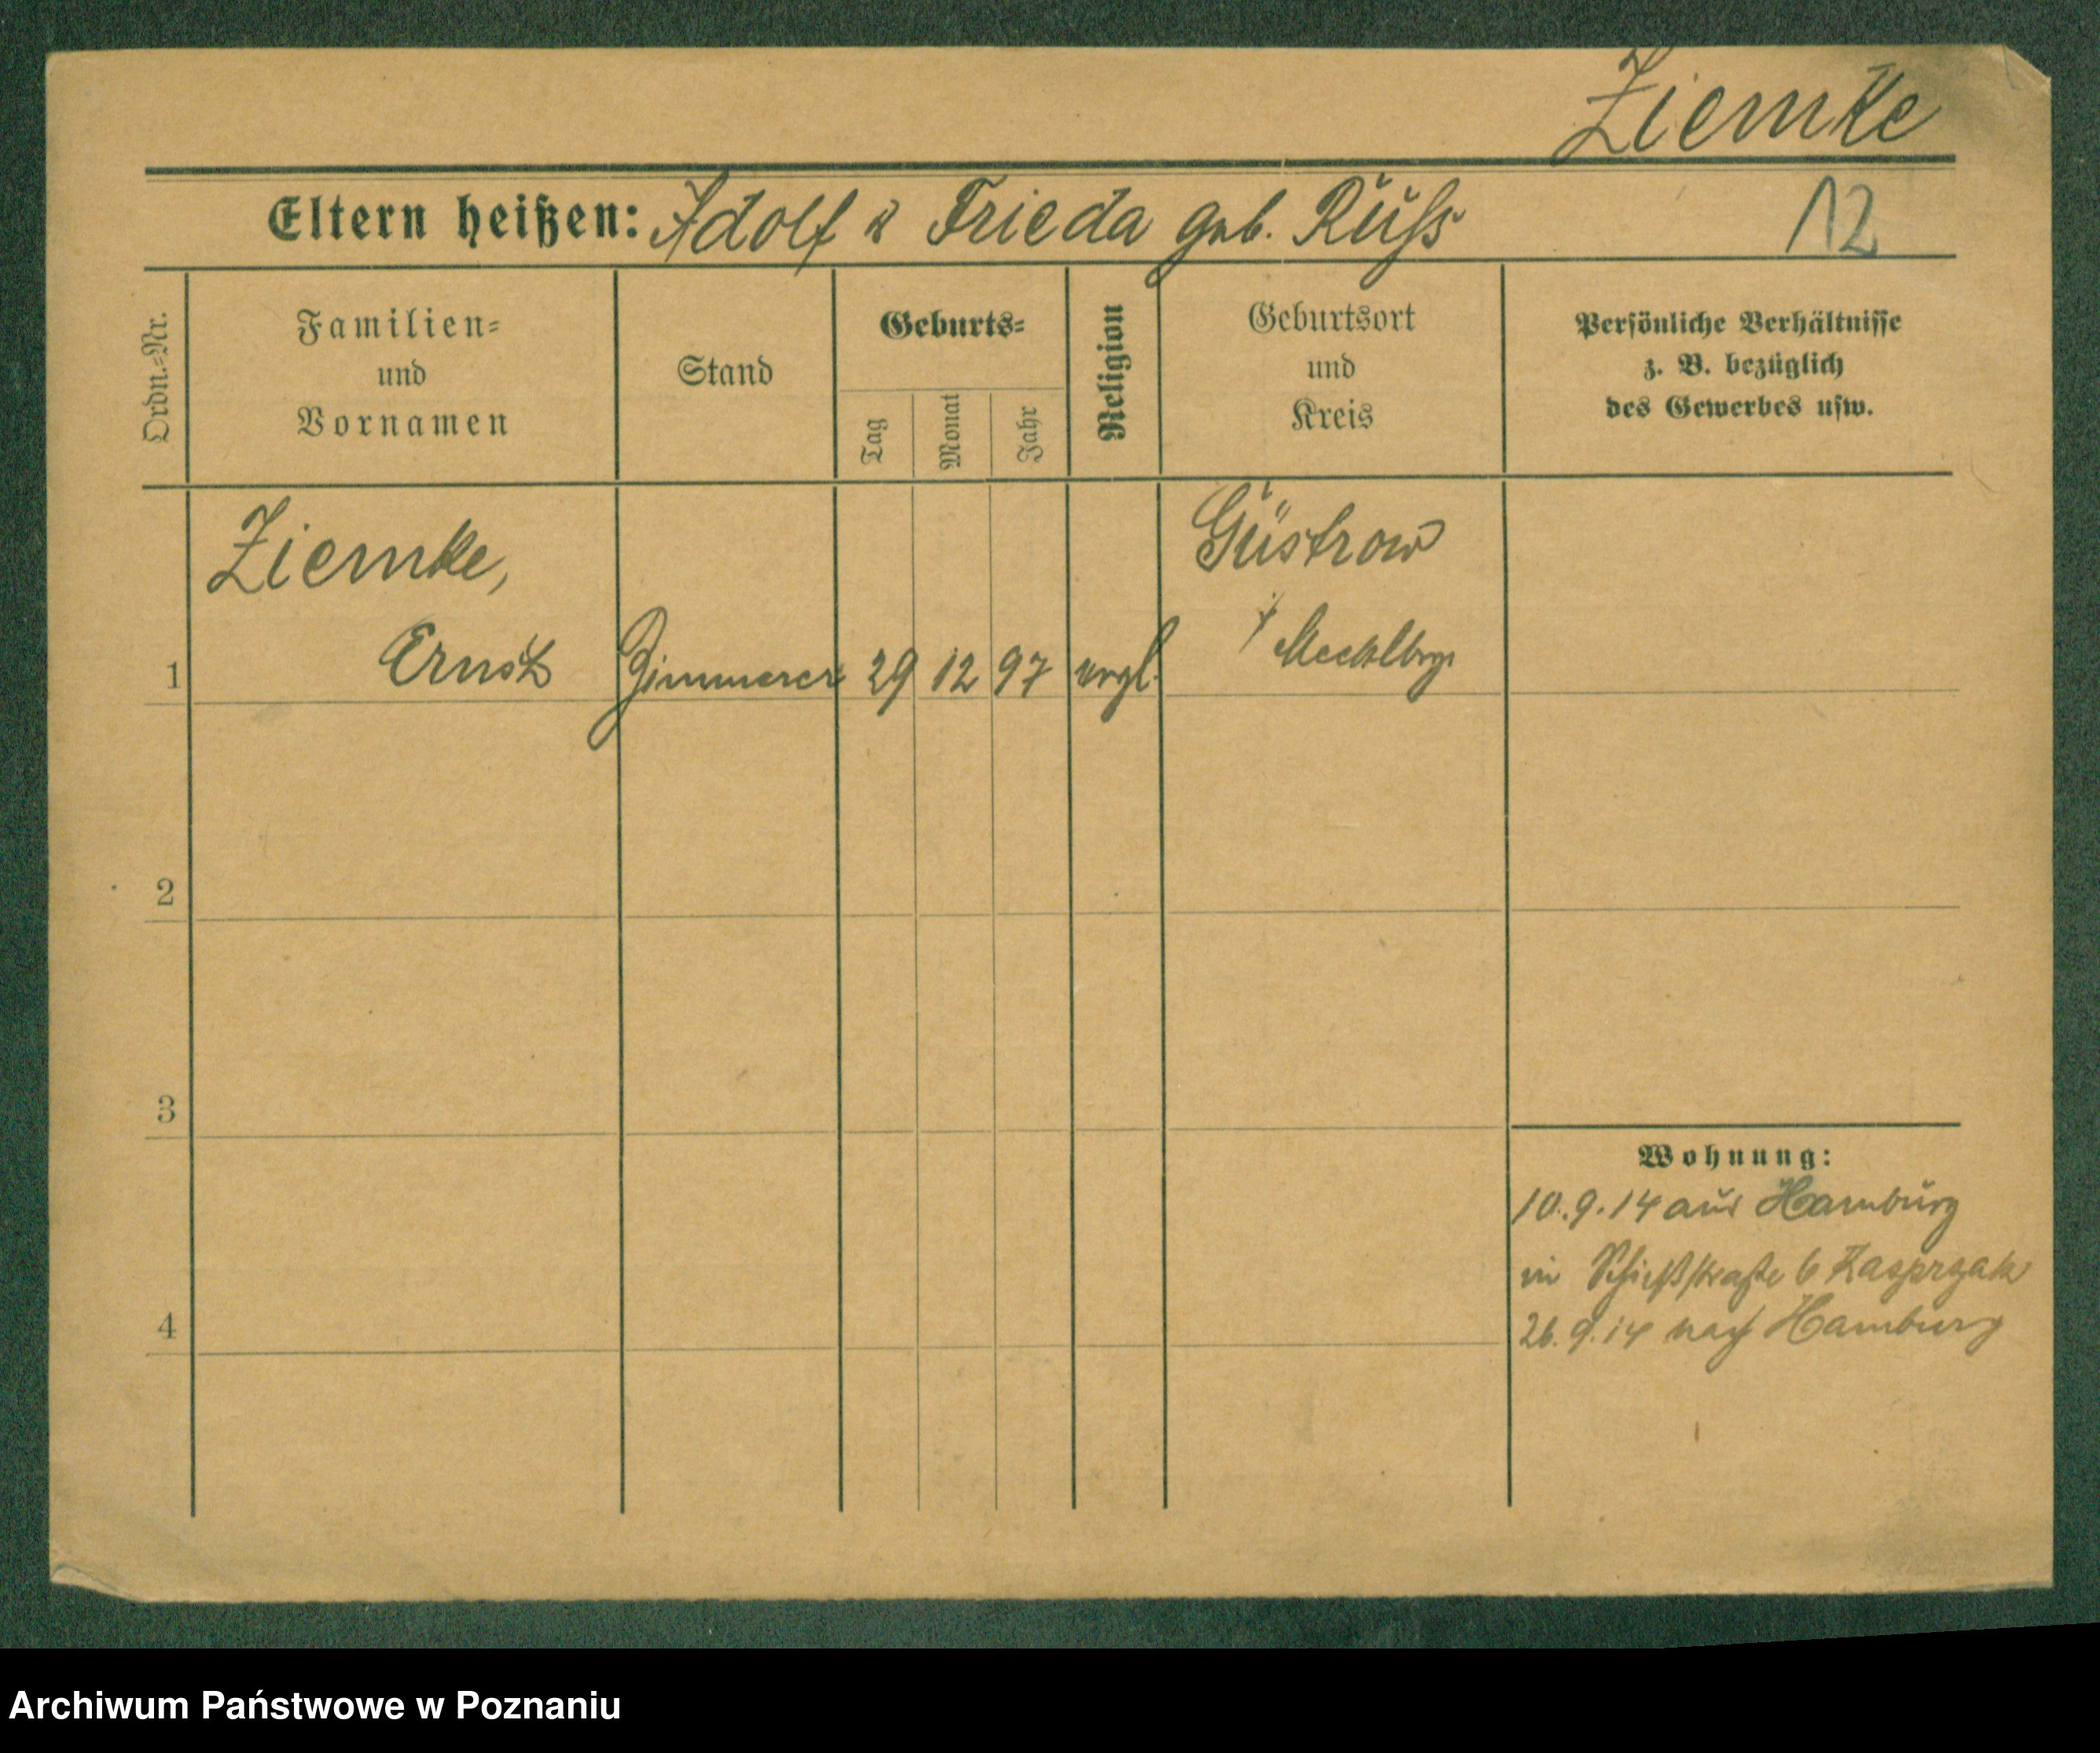 Ziemke
Eltern heißen: Adolf u Frieda geb. Rüſs
12
Ordn.=Nr.
Familien=
und
Vornamen
Stand
Geburts=
Tag
Monat
Jahr
Religion
Geburtsort
und
Kreis
Persönliche Verhältnisse
z. B. bezüglich
des Gewerbes usw.
Ziemke,
Güstrow
1 Ernst Zimmerer 29 12 97 evgl.
2
3
4
Wohnung:
10.9.14 aus Hamburg
in Schießstraße 6 Kasprzak
26.9.14 nach Hamburg
Archiwum Państwowe w Poznaniu